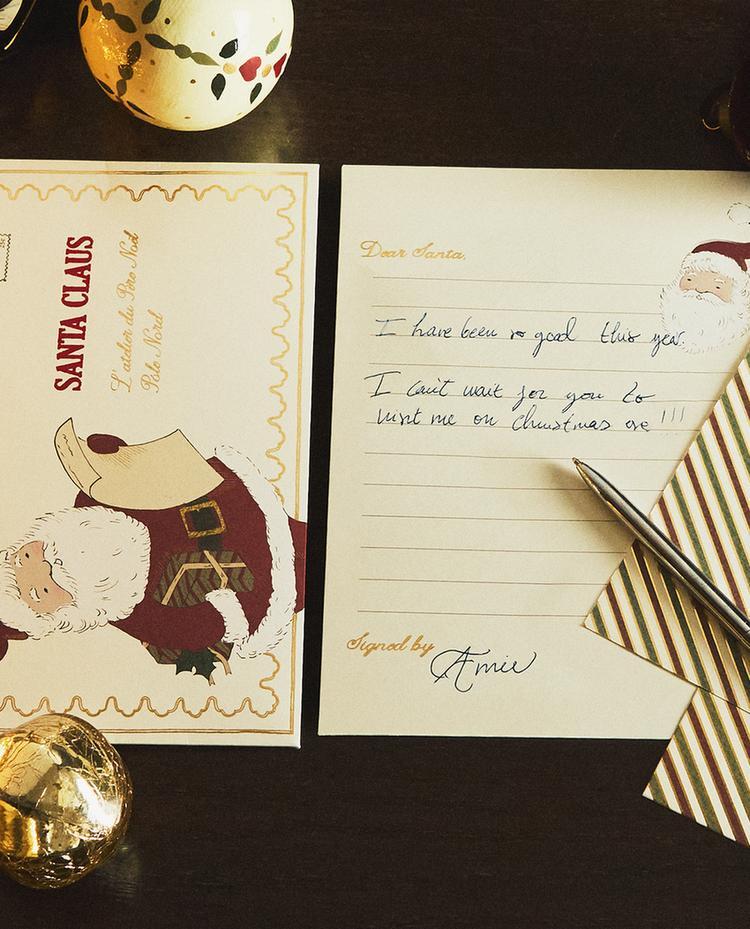 SANTA CLAUS
L'atelier du Père Noël
Pole Nord
Dear Santa,
I have been so good this year.
I can't wait for you to
visit me on Christmas eve !!!
Signed by
Amie